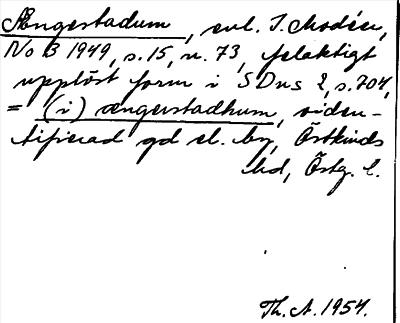 Ængerstadum, enl. I. Modéer,
No B 1949, s. 15, n. 73, felaktigt
upplöst form i SDns 2, s. 704,
= (i) ængerstadhum, oiden-
tifierad gd el. by, Östkinds
hd, Östg. l.
Th. A. 1954.